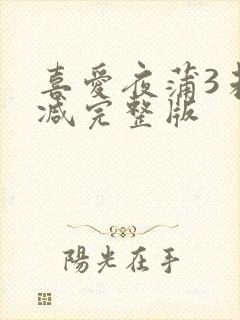 喜愛夜蒲3未
減完整版
陽光在手